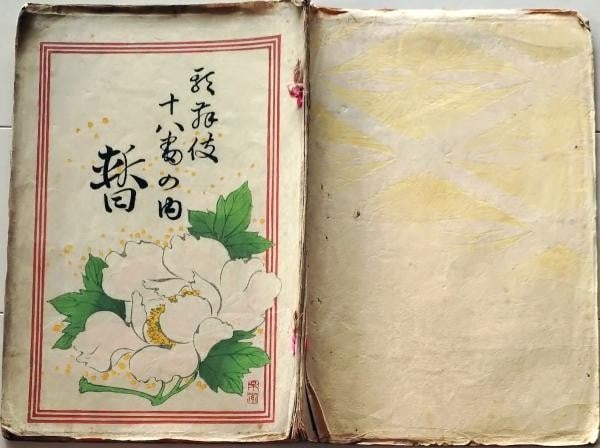 歌舞伎
十八番の内
暫